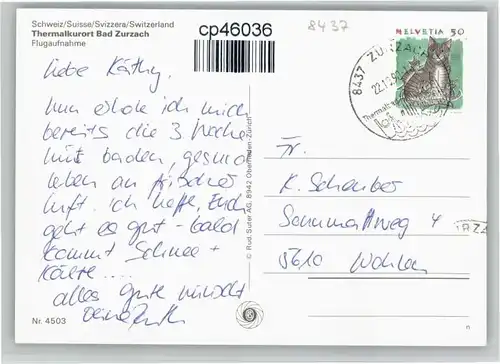 Schweiz/Suisse/Svizzera/Switzerland
Thermalkurort Bad Zurzach
Flugaufnahme
cp46036
8437
HELVETIA 50
8437 ZURZACH
22.10.90
Thermal
Liebe Käthy,
Nun erhole ich mich
bereits die 3 Woche
mit baden, gesund
leben an frischer
Luft. ich hoffe, Euch
geht es gut - bald
kommt Schnee +
Kälte....
alles gute wünscht
Deine Ruth
Fr.
K. Schenber
Sonnmattweg 4
5610 Wohlen
RZA
© Rud. Suter AG, 8942 Oberrieden-Zürich
Nr. 4503